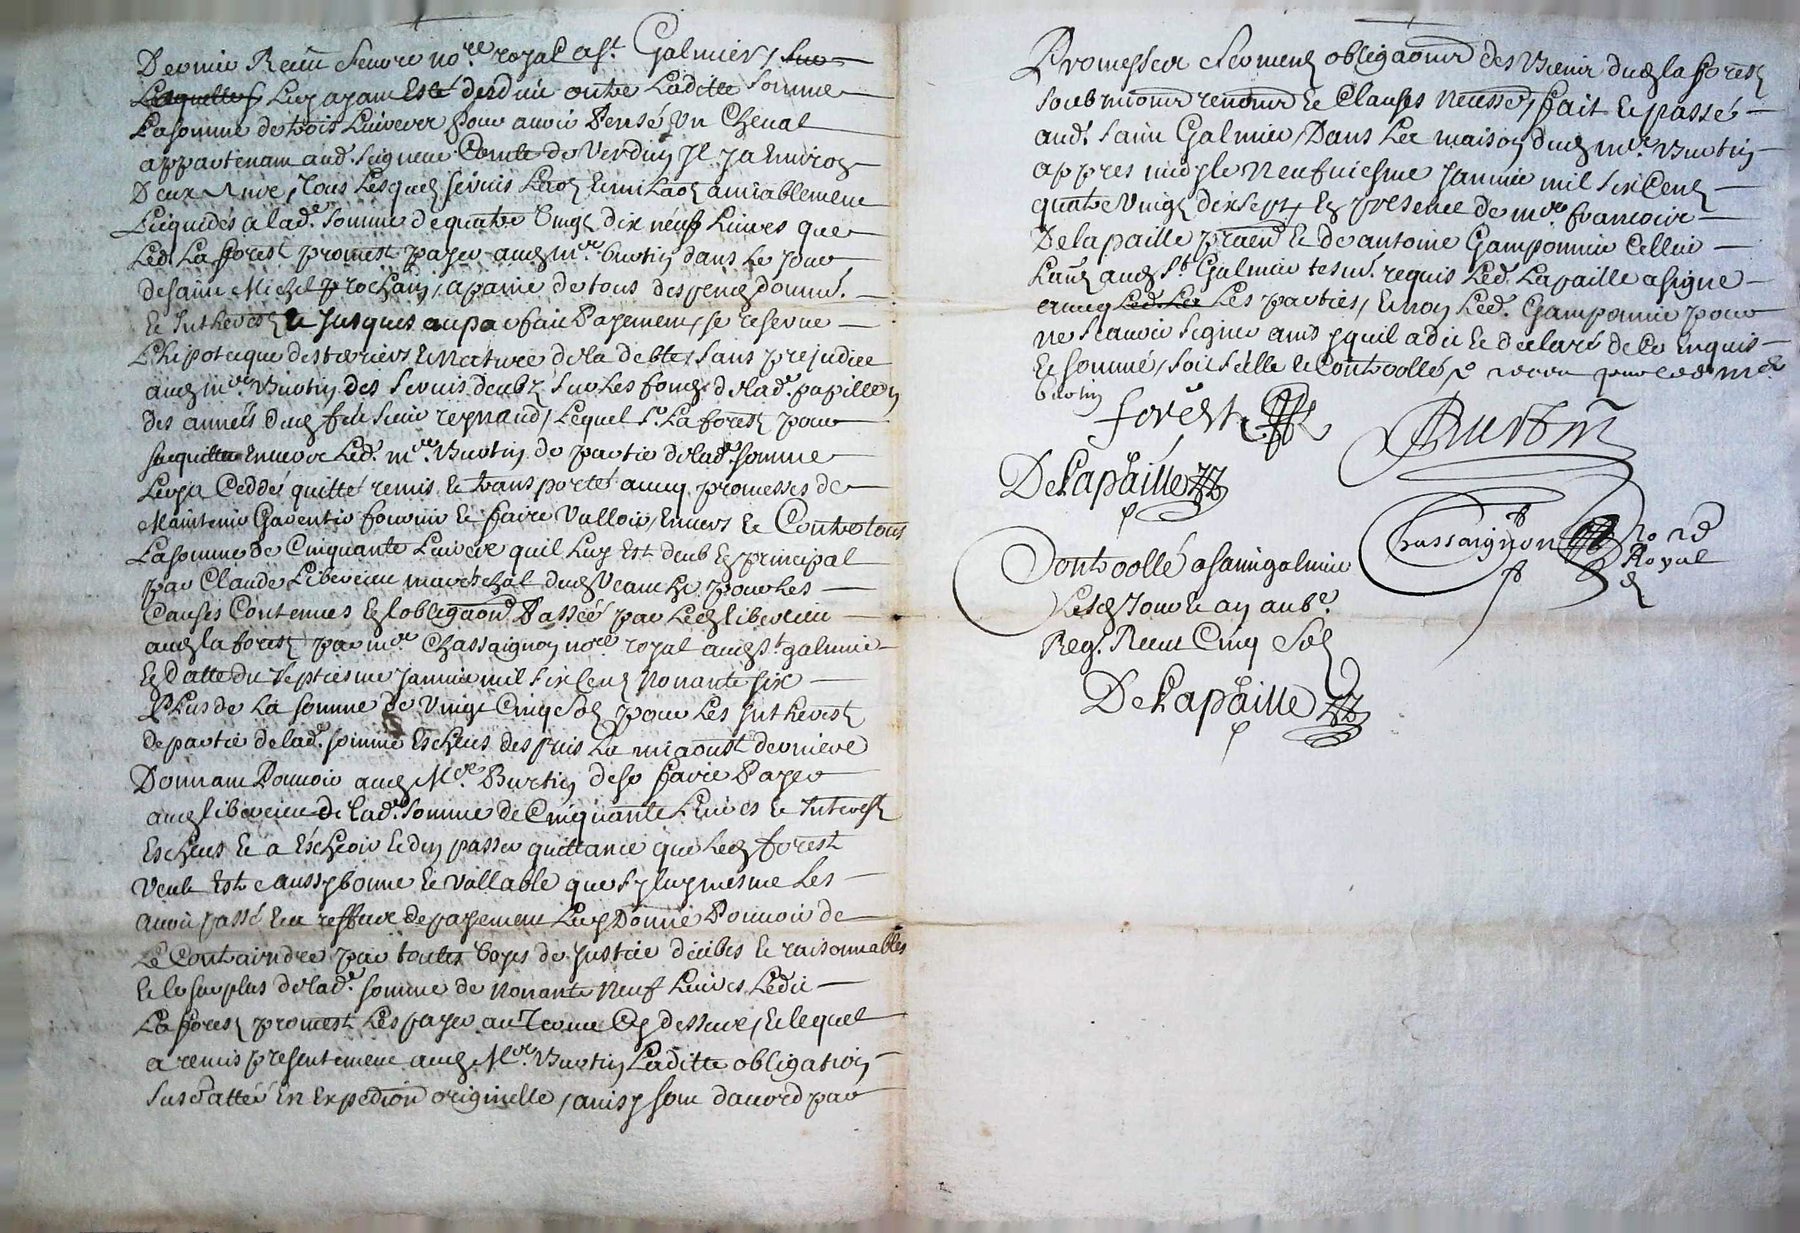 Dernier Receu pour no.re royal a S.t Galmier, sur
Laquelle luy ayant Esté desduit outre Laditte somme
La somme de trois Livres pour avoir Pensé Un Cheval
appartenant aud. Seigneur Comte de Verdun Il y a Environ
Deux Ans, tous Lesquels
Liquidés a lad.e somme de quatre Vingt dix neuf Livres que
Led. La forest promest payer aud. m.re Burtin dans Le jour
de saint Michel prochain, a paine de tous despens domm.
Et Intherest Et Jusques au parfait Payement, se reserve
L'hipoteque des terriers, Et Nature de la debte, sans prejudice
aud. m.re Burtin des servis deubz sur Les fonds de lad.
des années dud. feu sieur reynaud, Lequel s.r La forest pour
s'acquitter Envers Led. m.re Burtin de partie de lad.e somme
Luy a Ceddé quitté remis Et transporté avecq promesses de
Maintenir Garentir fournir Et faire Valloir, Envers Et Contre tous
La somme de Cinquante Livres qu'il Luy Est deub En principal
par Claude Libercier mareschal dud. Veauche pour Les
Causes Contenues En lobligaon Passée par Led. libercier
aud. la forest par m.re Chassaignon no.re royal aud. S.t galmier
En datte du septiesme janvier mil six Cens Nonante six
Plus de La somme de Vingt Cinq Solz pour Les Intherest
de partie de lad. somme Escheus despuis La miaoust derniere
Donnant Pouvoir aud. M.re Burtin de se faire Payer
aud. libercier de lad. somme de Cinquante Livres Et Interest
Escheus Et a Escheoir Et d'en passer quittance que Led. forest
Veut Estre aussy bonne Et Vallable que sy luy mesme Les
avoit passé Et au reffus de payement Luy Donne Pouvoir de
Le Contraindre par toutes Voyes de Justice deubes Et raisonnables
Et le surplus de lad.e somme de Nonante Neuf Livres, Ledit
La forest promest Les payer au Terme Cy dessus, Et lequel
a remis presentement aud. M.re Burtin Laditte obligation
Susdattée En Expedion originelle, ainsy sont d'accord par
Promesses serment obligaons des biens dud. la forest
soubmions renons Et Clauses Necess.es, fait Et passé
aud. saint Galmier, Dans La maison dud. m.re Burtin
appres midy le Neufviesme janvier mil six Cens
quatre Vingt dix sept, En presence de m.re francois
Delapaille praen Et de antoine Gamponnier Cellier
aud. S.t Galmier tesm. requis Led. Lapaille a signé
avecq Led. Les Les parties, Et non Led. Gamponnier pour
ne scavoir signer ainsy qu'il a dit Et declaré de Ce Enquis
Et sommé, soit sellé Et Controollé, pour led. m.re
Burtin
forest
Burtin
DeLapaille
Chassaignon no.re
Royal
Controollé a saint galmier
Lesd. Jour Et an au
Reg. Receu Cinq Solz
DeLapaille